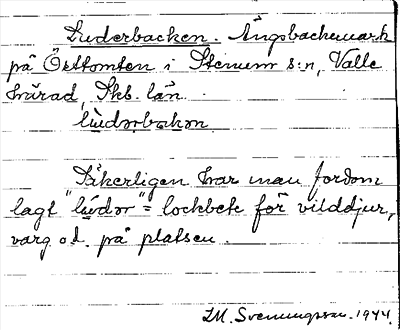 Luderbacken. Ängsbackemark
på Östtomten i Stenum s:n, Valle
härad, Skb. län.
lüdərbakən
Säkerligen har man fordom
lagt "lüdər" = lockbete för vilddjur,
varg o.d. på platsen.
I.M. Svenungsson. 1944.